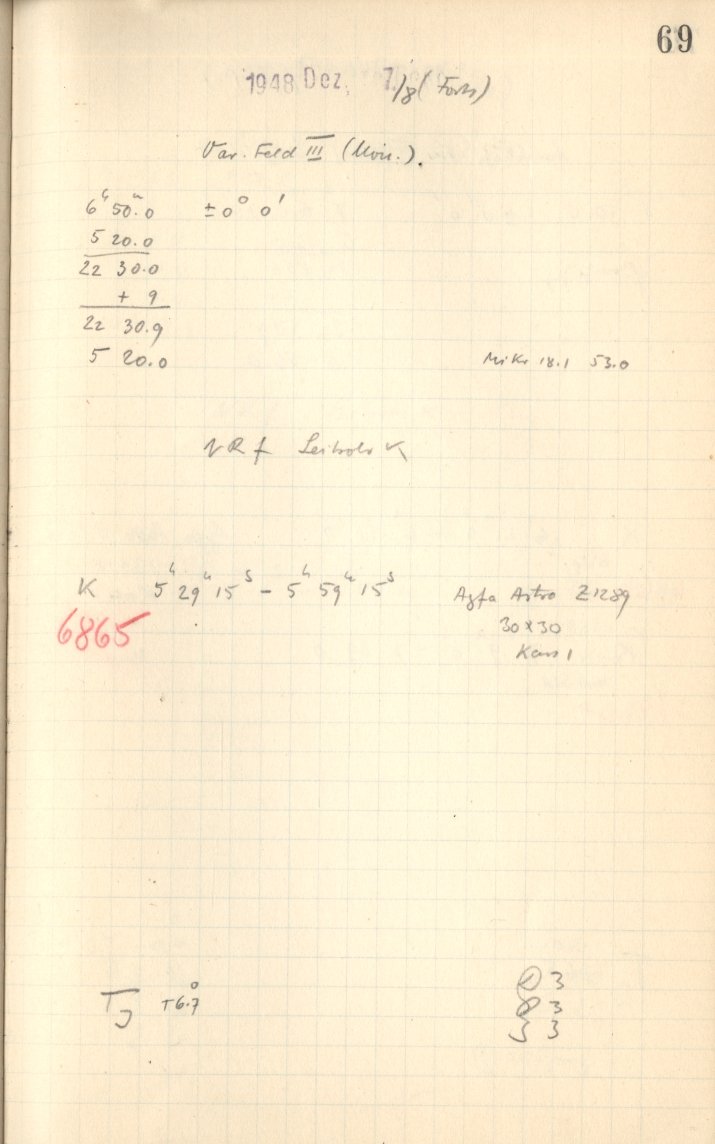 69
1948 Dez. 7./8 (Forts)
Var. Feld III (Mon.).
6ʰ 50ᵐ.0 ±0° 0'
5 20.0
22 30.0
+ 9
22 30.9
5 20.0 Mikr 18.1 53.0
K 5ʰ 29ᵐ 15ˢ – 5ʰ 59ᵐ 15ˢ Agfa Astro Z1289
6865 30x30
Kass 1
T +6.7°
3
3
3